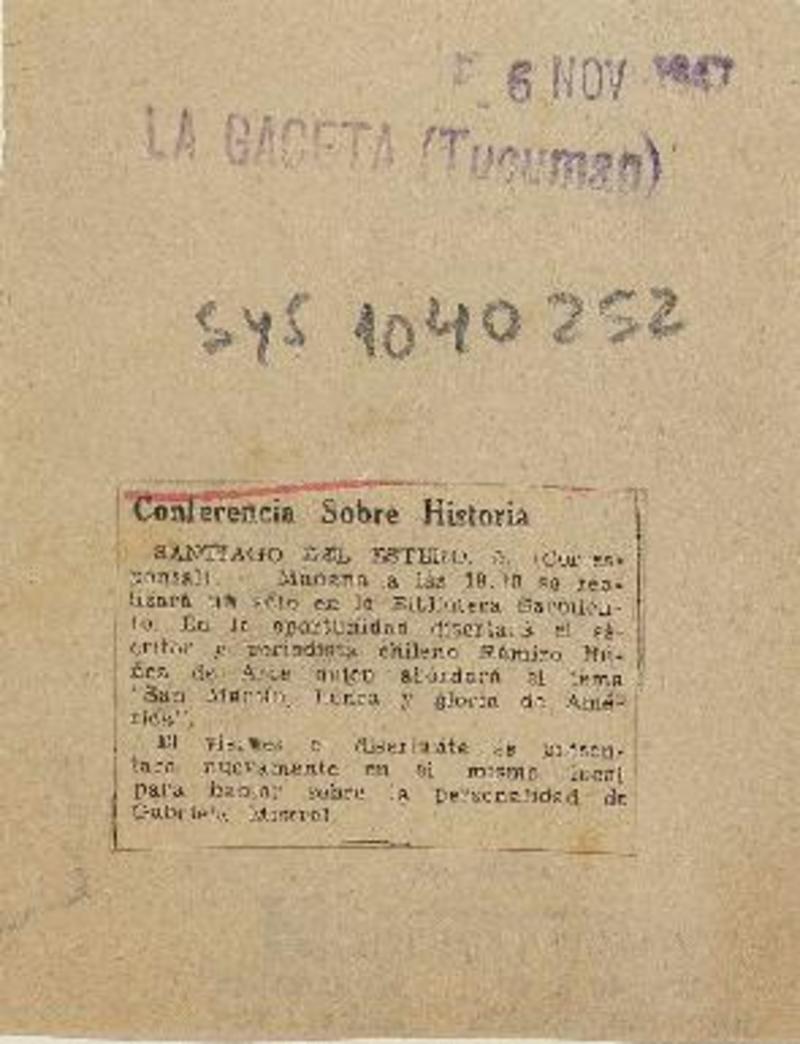 6 NOV 1947
LA GACETA (Tucuman)
sys 1040252
Conferencia Sobre Historia
SANTIAGO DEL ESTERO, 5. (Corres-
ponsal). - Mañana a las 19.30 se rea-
lizará un acto en la Biblioteca Sarmien-
to. En la oportunidad disertará el es-
critor y periodista chileno Ramiro
de Arce quien abordará el tema
"San Martín, honra y gloria de Amé-
rica".
El viernes el disertante se presen-
tará nuevamente en el mismo local
para hablar sobre la personalidad de
Gabriela Mistral